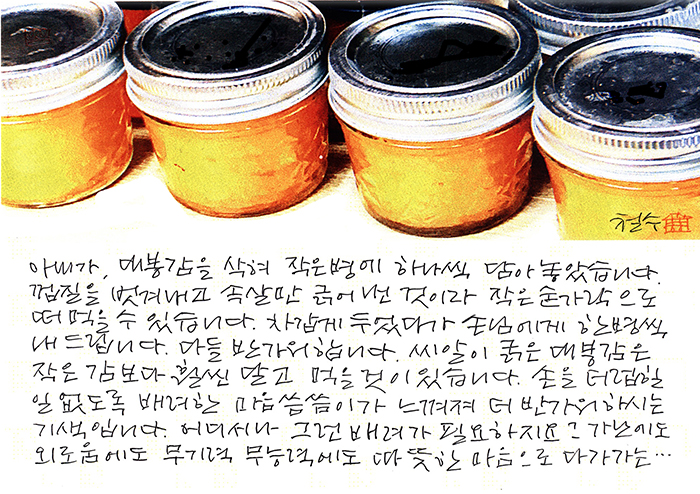 철수
아내가, 대봉감을 삭혀 작은병에 하나씩 담아 놓았습니다.
껍질을 벗겨내고 속살만 긁어 넣은 것이라 작은 숟가락으로
떠 먹을 수 있습니다. 차갑게 두었다가 손님에게 한병씩
내 드립니다. 다들 반가워합니다. 씨알이 굵은 대봉감은
작은 감보다 훨씬 달고 먹을 것이 있습니다. 손을 더럽힐
일 없도록 배려한 마음씀씀이가 느껴져 더 반가워하시는
기색입니다. 어디서나 그런 배려가 필요하지요. 그 가난에도
외로움에도 무기력 무능력에도 따뜻한 마음으로 다가가는…